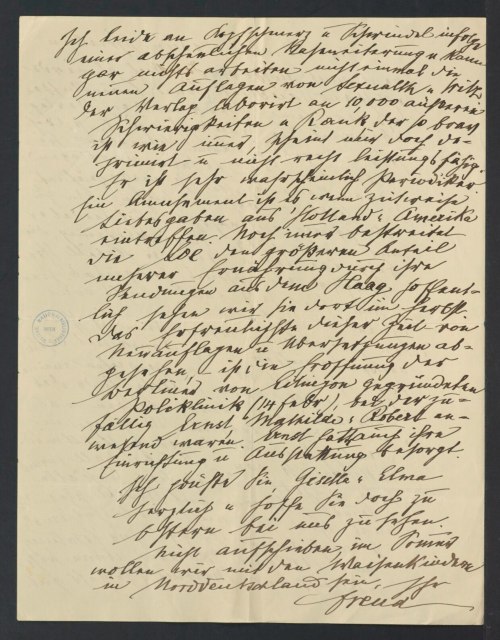 Ich leide an Kopfschmerz u Schwindel infolge
einer abscheulichen Naseneiterung u kann
gar nichts arbeiten nicht einmal die
neuen Auflagen von Sexualth u Witz
Der Verlag laborirt an 10,000 äußeren
Schwierigkeiten u Rank der so brav
ist wie immer, scheint mir doch de-
primirt u nicht recht leistungsfähig
Er ist sehr wahrscheinlich Periodiker
Ein Amusement ist es wenn zeitweise
Liebesgaben aus Holland u Amerika
eintreffen. Noch immer bestreitet
die den größeren Anteil
unserer Ernährung durch ihre
Sendungen aus dem Haag hoffent-
lich sehen wir sie dort im Herbst
Das Erfreulichste dieser Zeit von
Neuauflagen u Übersetzungen ab-
gesehen, ist die Eröffnung der
Berliner von Eitingon gegründeten
Poliklinik (14 Febr) bei der zu-
fällig Ernst Mathilde u Robert an-
wesend waren. Ernst hat auch ihre
Einrichtung u Ausstattung besorgt.
Ich grüße Sie Gisella u Elma
herzlich u hoffe Sie doch zu
Ostern bei uns zu sehen.
Nicht aufschieben, im Sommer
wollen wir mit den Waisenkindern
in Norddeutschland sein. Ihr
Freud